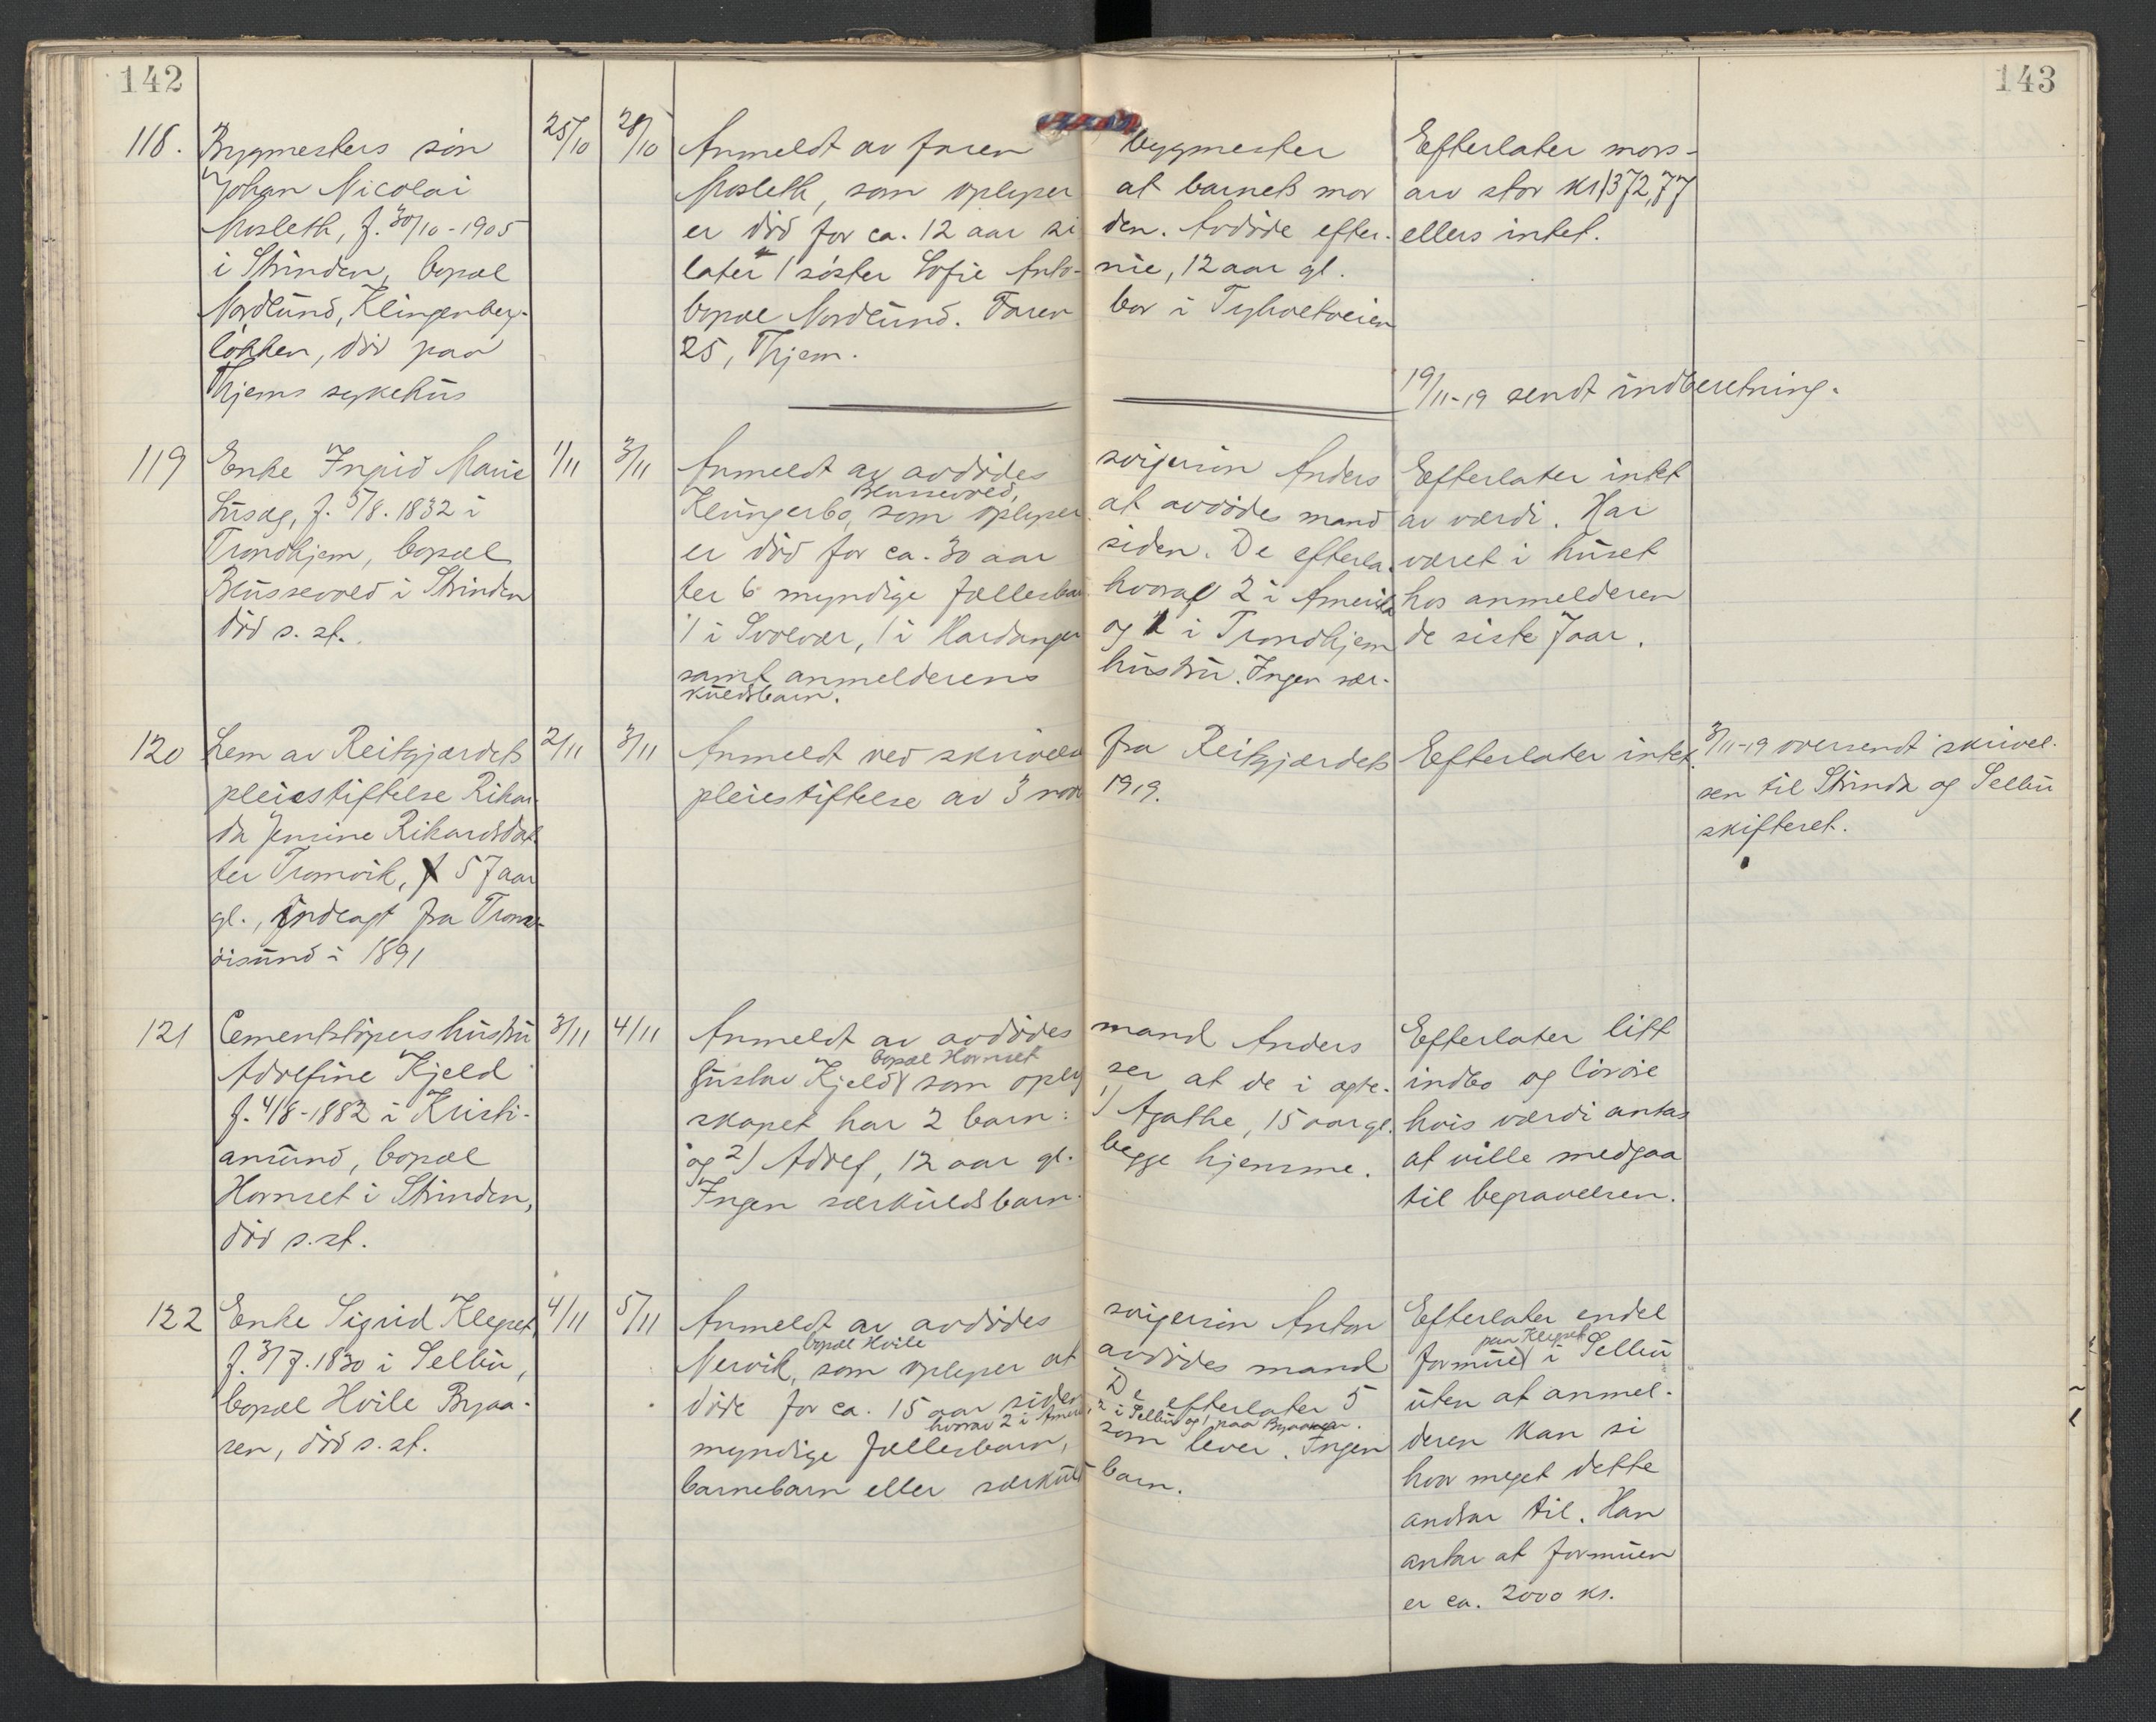 142
143
118.
Bygmesters søn
Johan Nicolai
Mosleth, f. 30/10-1905
i Strinden, bopæl
Nordlund, Klingenberg-
løkken, død paa
Thjems sykehus
25/10
28/10
Anmeldt av faren bygmester
Mosleth, som oplyser at barnets mor
er død for ca. 12 aar siden. Avdøde efter-
later 1 søster Sofie Antonie, 12 aar gl.
bopæl Nordlund. Faren bor i Tyholtveien
25, Thjem.
Efterlater mors-
arv stor kr 1372,77
ellers intet.
19/11-19 sendt indberetning.
119
Enke Ingrid Marie
Lusæg, f. 5/8. 1832 i
Trondhjem, bopæl
Blussevold i Strinden
død s. st.
1/11
3/11
Anmeldt av avdødes svigersøn Anders
Blussevold,
Klungerbo, som oplyser at avdødes mand
er død for ca. 30 aar siden. De efterla-
ter 6 myndige fællesbarn hvorav 2 i Amerika
1 i Svolvær, 1 i Hardanger og 1 i Trondhjem
samt anmelderens hustru. Ingen sær-
kuldsbarn.
Efterlater intet
av værdi. Har
været i huset
hos anmelderen
de siste 7 aar.
120
Lem av Reitgjærdets
pleiestiftelse Rikar-
da Jensine Rikardsdat-
ter Tromvik, 57 aar
gl., indlagt fra Troms-
øisund i 1891
2/11
3/11
Anmeldt ved skrivelse fra Reitgjærdets
pleiestiftelse av 3 nov 1919.
Efterlater intet.
3/11-19 oversendt skrivel-
sen til Strinda og Selbu
skifteret.
121
Cementstøpers hustru
Adolfine Kjeld
f. 4/8-1882 i Kristi-
ansund, bopæl
Hornset i Strinden,
død s. st.
3/11
4/11
Anmeldt av avdødes mand Anders
bopæl Hornset
Gustav Kjeld som oplyser at de i egte-
skapet har 2 barn: 1) Agathe, 15 aar gl.
og 2) Adolf, 12 aar gl. begge hjemme.
Ingen særkuldsbarn.
Efterlater litt
indbo og løsøre
hvis værdi antas
at ville medgaa
til begravelsen.
122
Enke Sigrid Klepset
f. 3/7. 1830 i Selbu,
bopæl Hvile Byaa-
sen, død s. st.
4/11
5/11
Anmeldt av avdødes svigersøn Anton
bopæl Hvile
Nervik, som oplyser at avdødes mand
døde for ca. 15 aar siden. De efterlater 5
hvorav 2 i Amerika, 2 i Selbu og 1 paa Byaasen.
myndige fællesbarn, som lever. Ingen
barnebarn eller særkuldsbarn.
Efterlater endel
paa Klepset
formue i Selbu
uten at anmel-
deren kan si
hvor meget dette
andrar til. Han
antar at formuen
er ca. 2000 kr.